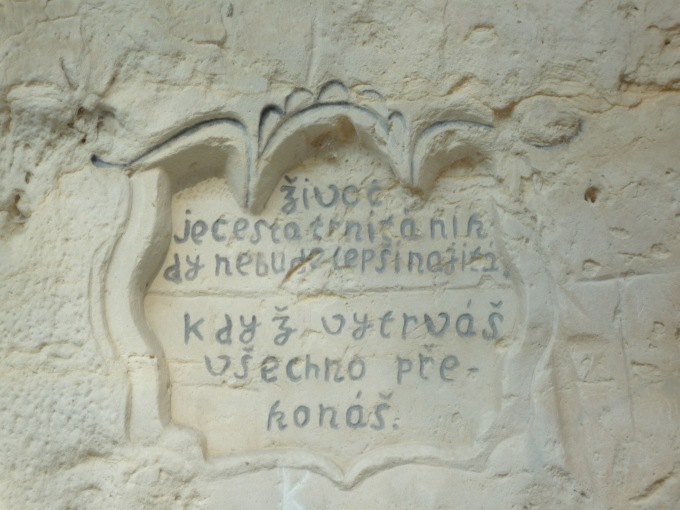 život
je cesta trnitá nik
dy nebude lepší najitá,
když vytrváš
všechno pře-
konáš.